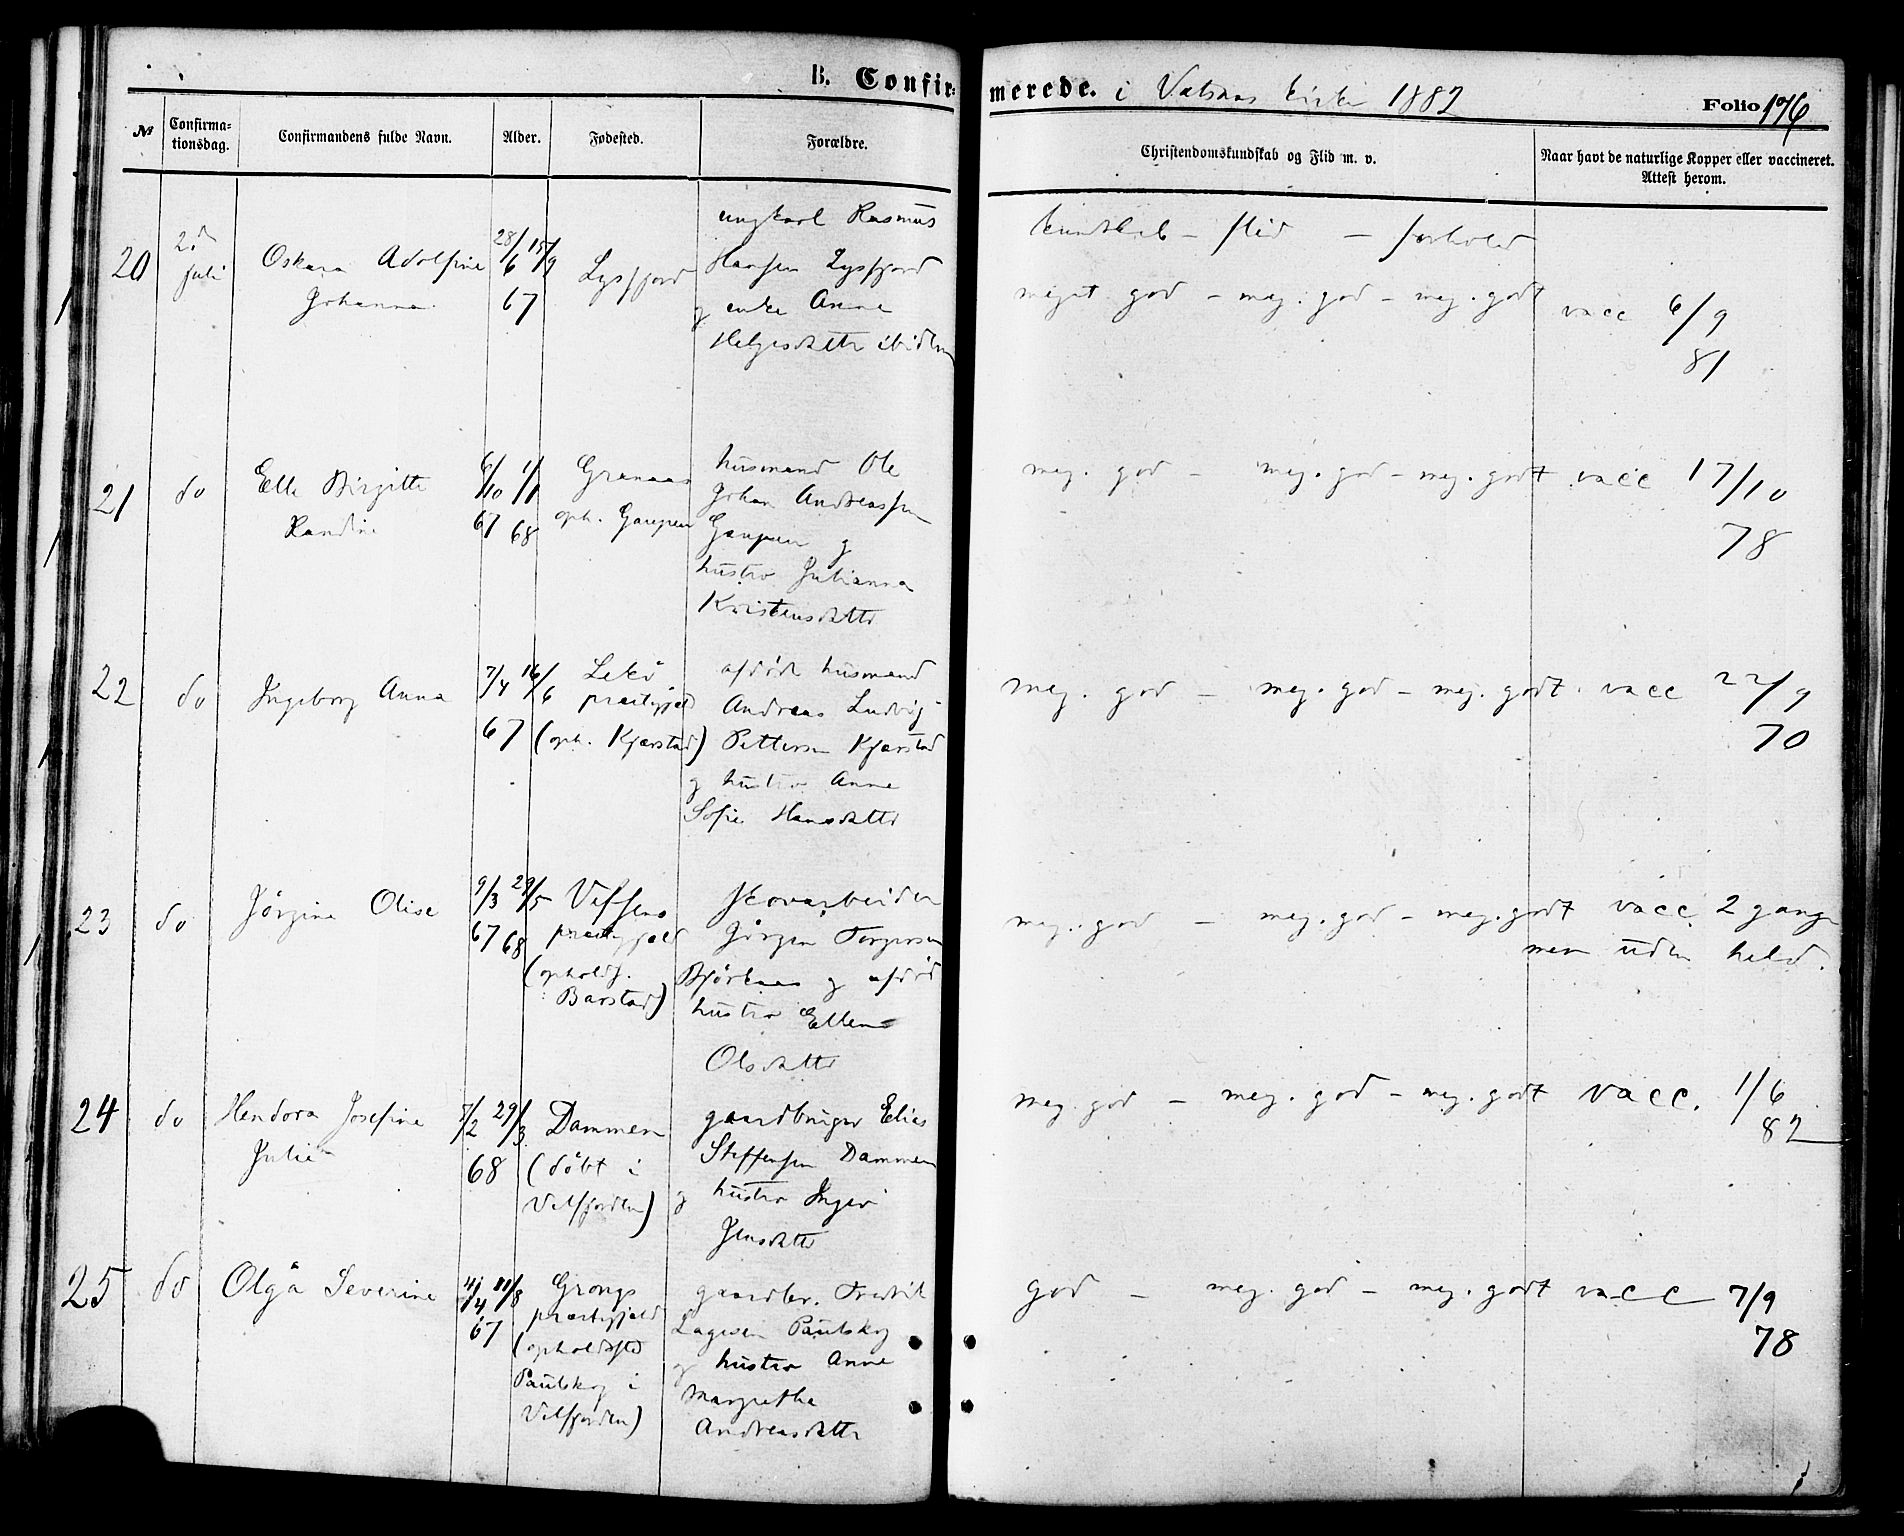 B. Confirmerede. i Vatsaas kirke 1882
Folio 176
№ Confirmationsdag. Confirmandens fulde Navn. Alder. Fødested. Forældre. Christendomskundskab og Flid m. v. Naar havt de naturlige Kopper eller vaccineret. Attest herom.
20
2d
juli
Oskara Adolfine
Johanna
28/6 15/9
67
Lysfjord
ungkarl Rasmus
Hansen Lysfjord
og enke Anna
Helgesdatter ibidem
kundskab – flid – forhold
meget god – meg. god – meg. godt
vacc 6/9
81
21
do
Elle Birgitte
Randine
6/10 1/1
67 68
Granaas
oph. Gaupen
husmand Ole
Johan Andreassen
Gaupen og
hustro Julianna
Kristensdatter
meg. god – meg. god – meg. godt
vacc 17/10
78
22
do
Ingeborg Anna
7/4 16/6
67
Lekø
præstegjeld
(oph. Kjærstad)
afdøde husmand
Andreas Ludvig
Pettersen Kjærstad
og hustro Anne
Sofie Hansdatter
meg. god – meg. god – meg. godt
vacc 22/9
70
23
do
Jørgine Olise
9/3 29/5
67 68
Vefsens
præstegjeld
(opholdss.
Barstad)
skovarbeider
Jørgen Torgersen
Bjørkaas og afdød
hustro Ellen
Olsdatter
meg. god – meg. god – meg. godt
vacc 2 gange
men uden held.
24
do
Hendora Josefine
Julie
7/2 29/3
68
Dammen
(døbt i
Velfjorden)
gaardbruger Elias
Steffensen Dammen
og hustro Inger
Jensdatter
meg. god – meg. god – meg. godt
vacc. 1/6
82
25
do
Olga Severine
4/4 11/8
67
Grongs
præstegjeld
(opholdssted
Paulskog i
Velfjorden)
gaardbr. Fredrik
Lagesen Paulskog
og hustro Anne
Margretha
Andreasdatter
god – meg. god – meg. godt
vacc 7/9
78